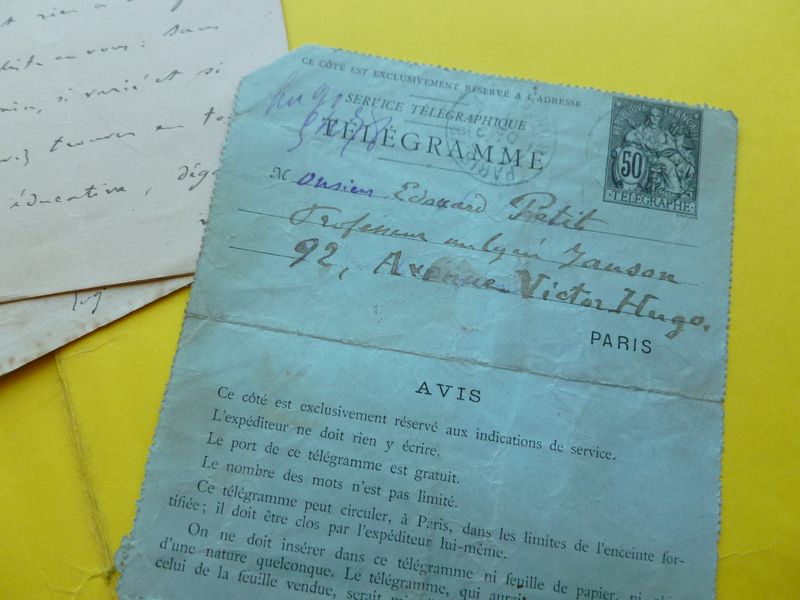 en vous : sans
si varié et si
trouver en
éducative,
CE CÔTÉ EST EXCLUSIVEMENT RÉSERVÉ À L'ADRESSE
SERVICE TÉLÉGRAPHIQUE
TÉLÉGRAMME
PARIS
50
TÉLÉGRAPHE
Monsieur Edouard Petit
Professeur au lycée Janson
92, Avenue Victor Hugo.
PARIS
AVIS
Ce côté est exclusivement réservé aux indications de service.
L'expéditeur ne doit rien y écrire.
Le port de ce télégramme est gratuit.
Le nombre des mots n'est pas limité.
Ce télégramme peut circuler, à Paris, dans les limites de l'enceinte for-
tifiée ; il doit être clos par l'expéditeur lui-même.
On ne doit insérer dans ce télégramme ni feuille de papier, ni
d'une nature quelconque. Le télégramme, qui
celui de la feuille vendue, serait